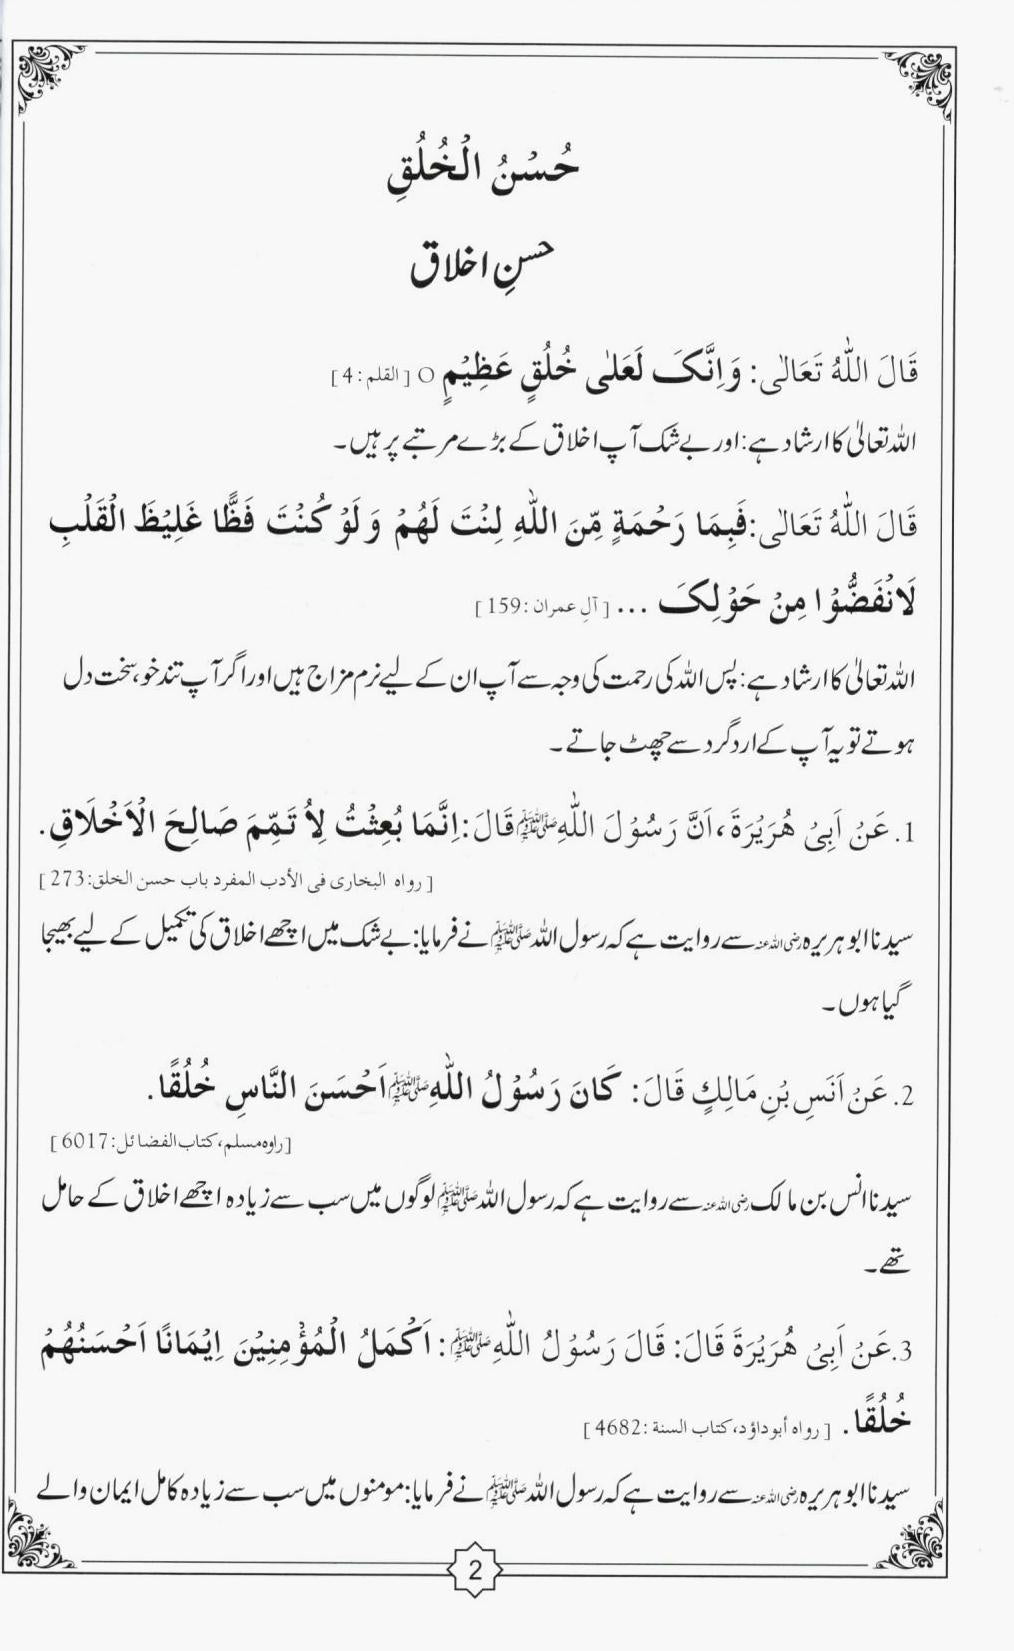 حُسْنُ الْخُلُقِ
حسنِ اخلاق
قَالَ اللّٰهُ تَعَالٰی: وَاِنَّکَ لَعَلٰی خُلُقٍ عَظِیْمٍ O [القلم:4]
اللہ تعالیٰ کا ارشاد ہے: اور بے شک آپ اخلاق کے بڑے مرتبے پر ہیں۔
قَالَ اللّٰهُ تَعَالٰی: فَبِمَا رَحْمَةٍ مِّنَ اللّٰهِ لِنْتَ لَهُمْ وَ لَوْ کُنْتَ فَظًّا غَلِیْظَ الْقَلْبِ
لَانْفَضُّوْا مِنْ حَوْلِکَ ... [آلِ عمران:159]
اللہ تعالیٰ کا ارشاد ہے: پس اللہ کی رحمت کی وجہ سے آپ ان کے لیے نرم مزاج ہیں اور اگر آپ تند خو، سخت دل
ہوتے تو یہ آپ کے اردگرد سے چھٹ جاتے۔
1. عَنْ اَبِیْ هُرَیْرَةَ، اَنَّ رَسُوْلَ اللّٰهِ ﷺ قَالَ: اِنَّمَا بُعِثْتُ لِاُ تَمِّمَ صَالِحَ الْاَخْلَاقِ.
[رواه البخاری فی الأدب المفرد باب حسن الخلق:273]
سیدنا ابو ہریرہ رضی اللہ عنہ سے روایت ہے کہ رسول اللہ ﷺ نے فرمایا: بے شک میں اچھے اخلاق کی تکمیل کے لیے بھیجا
گیا ہوں۔
2. عَنْ اَنَسِ بْنِ مَالِکٍ قَالَ: کَانَ رَسُوْلُ اللّٰهِ ﷺ اَحْسَنَ النَّاسِ خُلُقًا.
[راوه مسلم، کتاب الفضائل:6017]
سیدنا انس بن مالک رضی اللہ عنہ سے روایت ہے کہ رسول اللہ ﷺ لوگوں میں سب سے زیادہ اچھے اخلاق کے حامل
تھے۔
3. عَنْ اَبِیْ هُرَیْرَةَ قَالَ: قَالَ رَسُوْلُ اللّٰهِ ﷺ: اَکْمَلُ الْمُؤْمِنِیْنَ اِیْمَانًا اَحْسَنُهُمْ
خُلُقًا. [رواه أبوداؤد، کتاب السنة:4682]
سیدنا ابو ہریرہ رضی اللہ عنہ سے روایت ہے کہ رسول اللہ ﷺ نے فرمایا: مومنوں میں سب سے زیادہ کامل ایمان والے
2